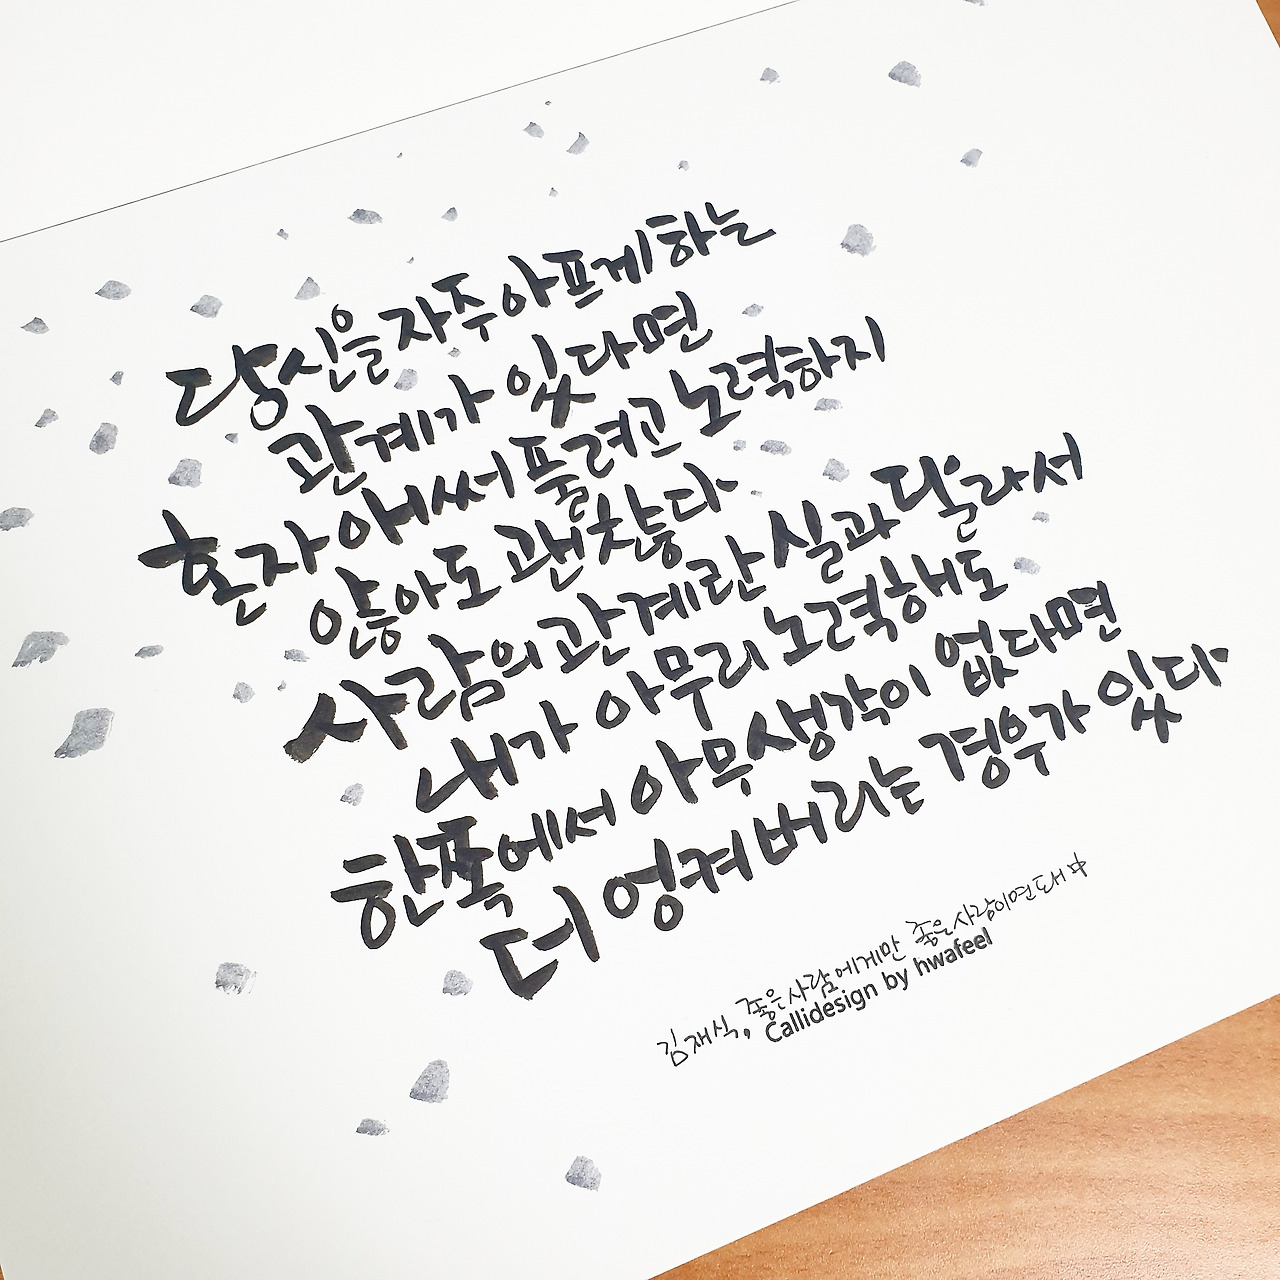 당신을 자주 아프게 하는
관계가 있다면
혼자 애써 풀려고 노력하지
않아도 괜찮다
사람의 관계란 실과 달라서
내가 아무리 노력해도
한쪽에서 아무 생각이 없다면
더 엉켜버리는 경우가 있다
김재식, 좋은사람에게만 좋은사람이면돼 中
Callidesign by hwafeel